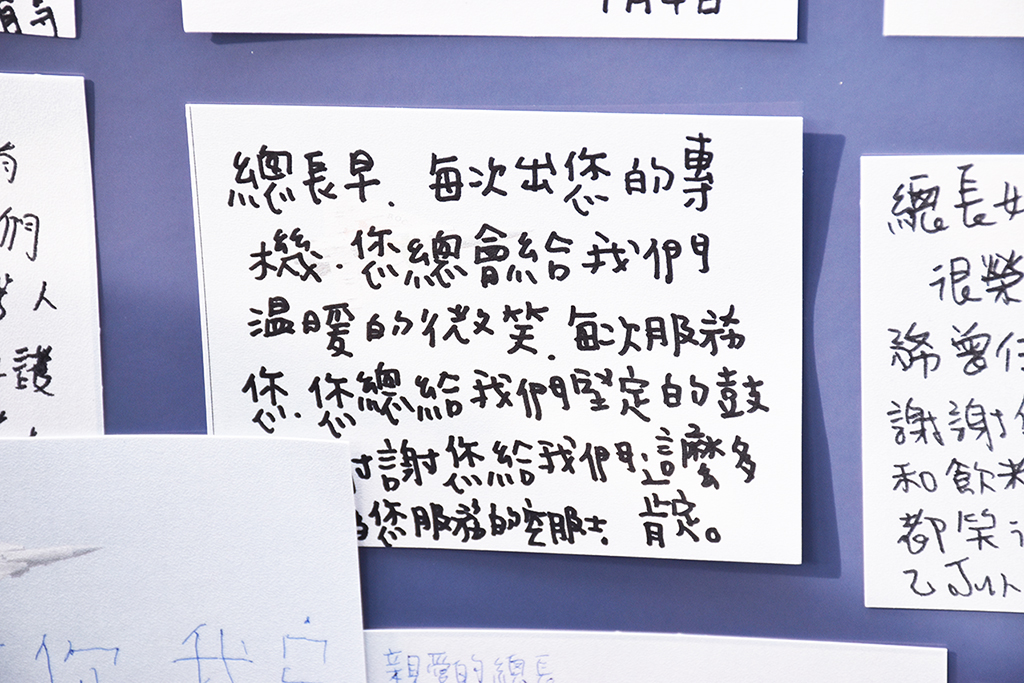 1月4日
總長早.每次出您的專
機.您總會給我們
温暖的微笑.每次服務
您.您總給我們堅定的鼓
謝您給我們這麼多
您服務的空服士.肯定。
們
人
護
總長
很榮
務曾任
謝謝
和飲
都笑
乙Jun
你 我
親愛的總長